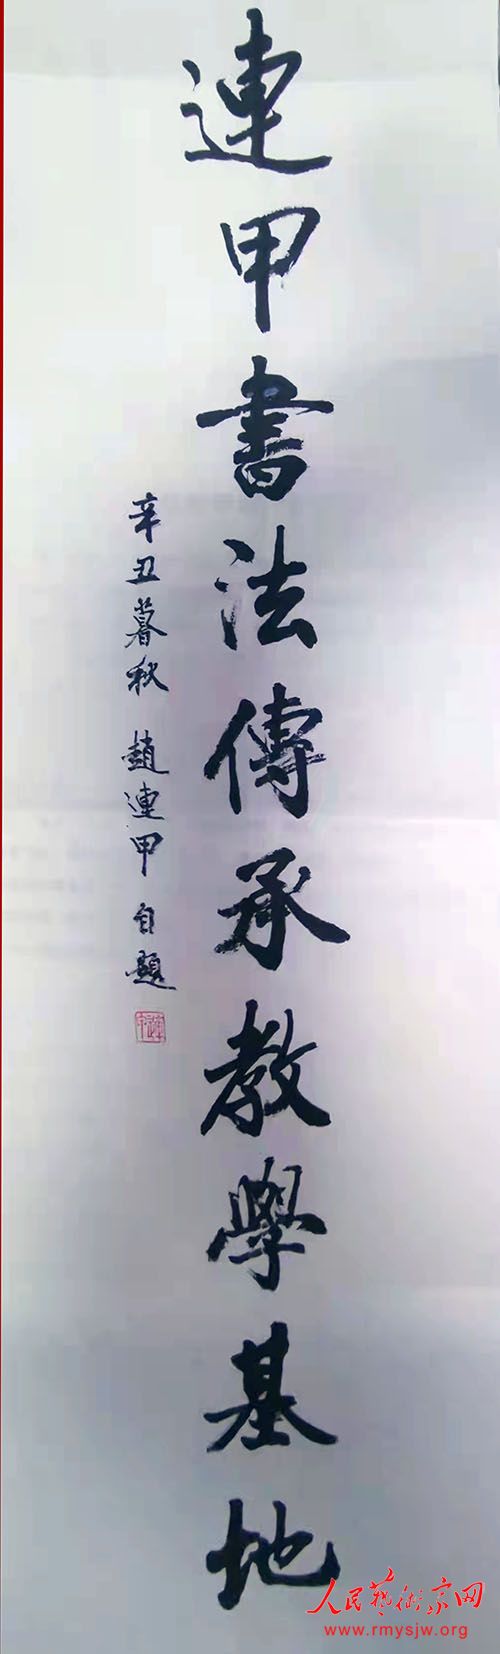 連甲書法傳承教學基地
辛丑暮秋 趙連甲 自題
人民藝術家网
www.rmysjw.org